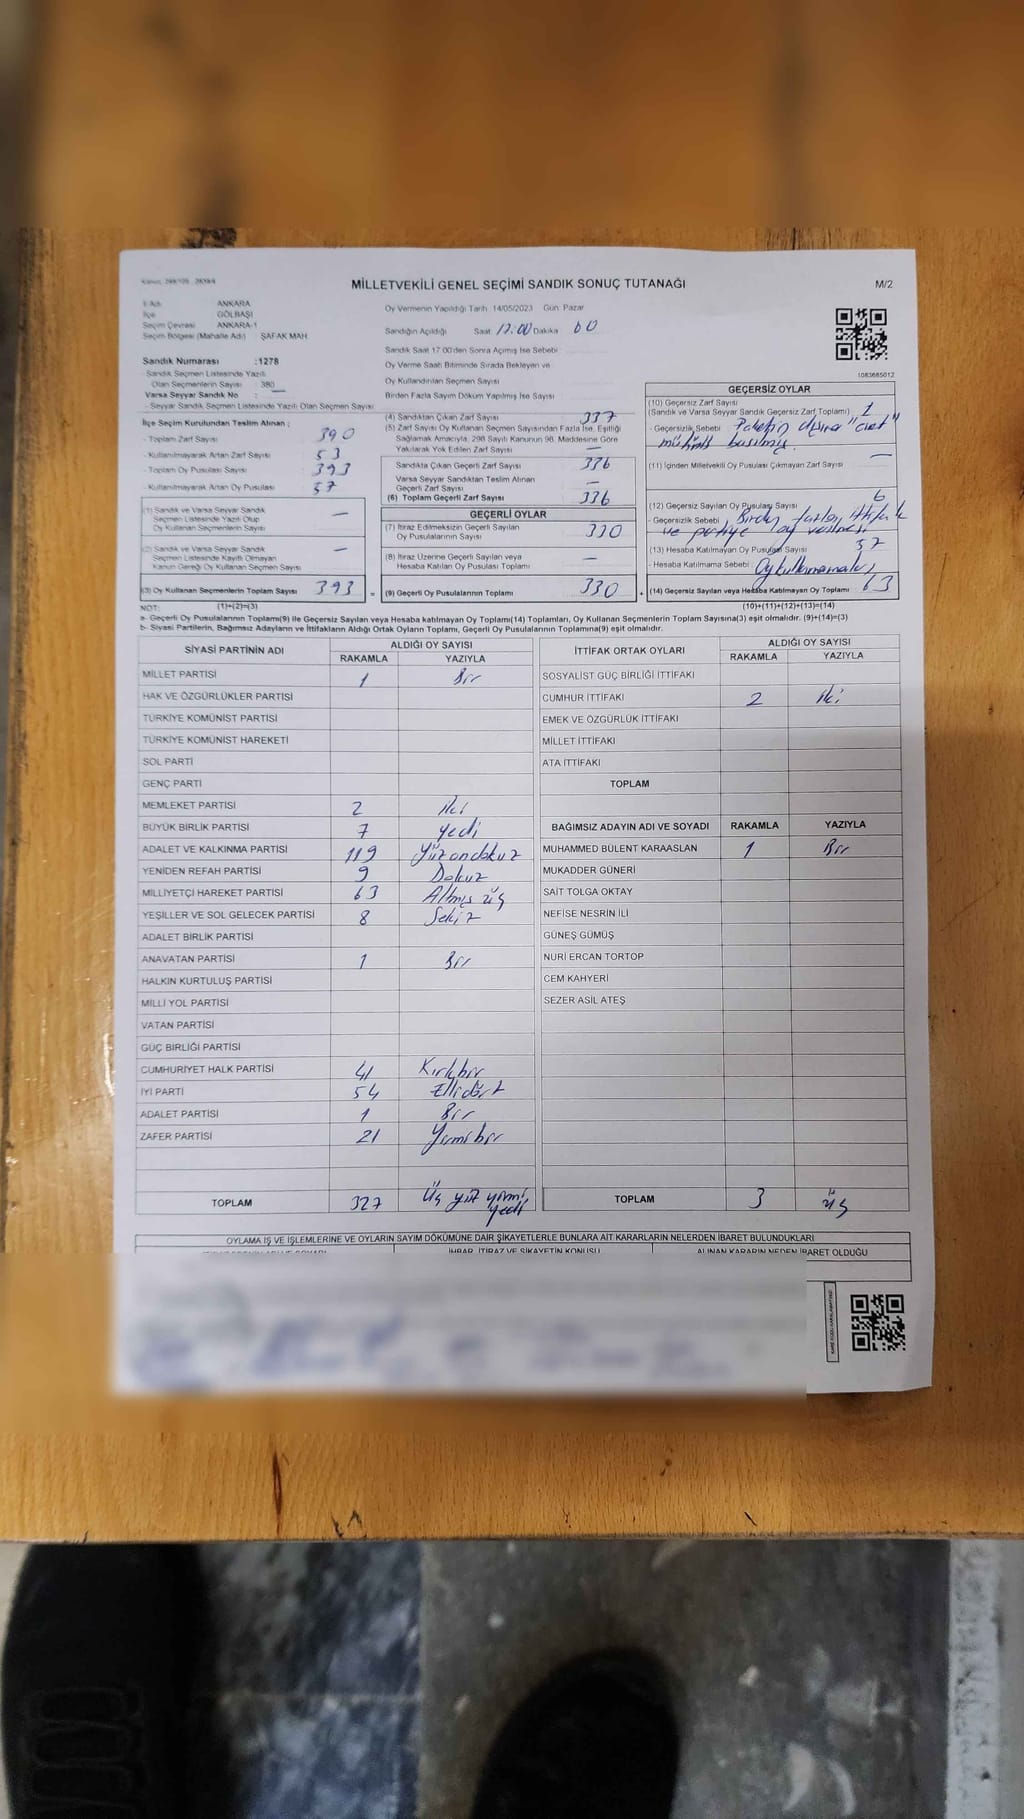 MİLLETVEKİLİ GENEL SEÇİMİ SANDIK SONUÇ TUTANAĞI
M/2
İl Adı ANKARA
İlçe GÖLBAŞI
Seçim Çevresi ANKARA-1
Seçim Bölgesi (Mahalle Adı) ŞAFAK MAH
Sandık Numarası :1278
- Sandık Seçmen Listesinde Yazılı
Olan Seçmenlerin Sayısı 380
Varsa Seyyar Sandık No
- Seyyar Sandık Seçmen Listesinde Yazılı Olan Seçmen Sayısı
Oy Vermenin Yapıldığı Tarih 14/05/2023 Gün Pazar
Sandığın Açıldığı Saat 17:00 Dakika 00
Sandık Saat 17:00'den Sonra Açılmış İse Sebebi
Oy Verme Saati Bitiminde Sırada Bekleyen ve
Oy Kullandırılan Seçmen Sayısı
Birden Fazla Sayım Döküm Yapılmış İse Sayısı
1083685012
İlçe Seçim Kurulundan Teslim Alınan ;
- Toplam Zarf Sayısı 390
- Kullanılmayarak Artan Zarf Sayısı 53
- Toplam Oy Pusulası Sayısı 393
- Kullanılmayarak Artan Oy Pusulası 57
(1) Sandık ve Varsa Seyyar Sandık
Seçmen Listesinde Yazılı Olup
Oy Kullanan Seçmenlerin Sayısı —
(2) Sandık ve Varsa Seyyar Sandık
Seçmen Listesinde Kayıtlı Olmayan
Kanun Gereği Oy Kullanan Seçmen Sayısı —
(3) Oy Kullanan Seçmenlerin Toplam Sayısı 393 =
(1)+(2)=(3)
(4) Sandıktan Çıkan Zarf Sayısı 337
(5) Zarf Sayısı Oy Kullanan Seçmen Sayısından Fazla İse, Eşitliği
Sağlamak Amacıyla, 298 Sayılı Kanunun 98. Maddesine Göre
Yakılarak Yok Edilen Zarf Sayısı —
Sandıkta Çıkan Geçerli Zarf Sayısı 336
Varsa Seyyar Sandıktan Teslim Alınan
Geçerli Zarf Sayısı —
(6) Toplam Geçerli Zarf Sayısı 336
GEÇERLİ OYLAR
(7) İtiraz Edilmeksizin Geçerli Sayılan
Oy Pusulalarının Sayısı 330
(8) İtiraz Üzerine Geçerli Sayılan veya
Hesaba Katılan Oy Pusulası Toplamı —
(9) Geçerli Oy Pusulalarının Toplamı 330 +
GEÇERSİZ OYLAR
(10) Geçersiz Zarf Sayısı
(Sandık ve Varsa Seyyar Sandık Geçersiz Zarf Toplamı) 1
- Geçersizlik Sebebi dışına "evet"
mührü basılmış
(11) İçinden Milletvekili Oy Pusulası Çıkmayan Zarf Sayısı —
(12) Geçersiz Sayılan Oy Pusulası Sayısı 6
- Geçersizlik Sebebi Birden fazla ittifak
ve partiye oy verilmesi
(13) Hesaba Katılmayan Oy Pusulası Sayısı 57
- Hesaba Katılmama Sebebi :
(14) Geçersiz Sayılan veya Hesaba Katılmayan Oy Toplamı 63
(10)+(11)+(12)+(13)=(14)
NOT:
a- Geçerli Oy Pusulalarının Toplamı(9) ile Geçersiz Sayılan veya Hesaba Katılmayan Oy Toplamı(14) Toplamları, Oy Kullanan Seçmenlerin Toplam Sayısına(3) eşit olmalıdır. (9)+(14)=(3)
b- Siyasi Partilerin, Bağımsız Adayların ve İttifakların Aldığı Ortak Oyların Toplamı, Geçerli Oy Pusulalarının Toplamına(9) eşit olmalıdır.
SİYASİ PARTİNİN ADI ALDIĞI OY SAYISI
RAKAMLA YAZIYLA
MİLLET PARTİSİ 1 Bir
HAK VE ÖZGÜRLÜKLER PARTİSİ
TÜRKİYE KOMÜNİST PARTİSİ
TÜRKİYE KOMÜNİST HAREKETİ
SOL PARTİ
GENÇ PARTİ
MEMLEKET PARTİSİ 2 iki
BÜYÜK BİRLİK PARTİSİ 7 yedi
ADALET VE KALKINMA PARTİSİ 119 Yüzondokuz
YENİDEN REFAH PARTİSİ 9 Dokuz
MİLLİYETÇİ HAREKET PARTİSİ 63 Altmış üç
YEŞİLLER VE SOL GELECEK PARTİSİ 8 Sekiz
ADALET BİRLİK PARTİSİ
ANAVATAN PARTİSİ 1 Bir
HALKIN KURTULUŞ PARTİSİ
MİLLİ YOL PARTİSİ
VATAN PARTİSİ
GÜÇ BİRLİĞİ PARTİSİ
CUMHURİYET HALK PARTİSİ 41 Kırkbir
İYİ PARTİ 54 Ellidört
ADALET PARTİSİ 1 Bir
ZAFER PARTİSİ 21 Yirmibir
TOPLAM 327 Üç yüz yirmi
yedi
İTTİFAK ORTAK OYLARI ALDIĞI OY SAYISI
RAKAMLA YAZIYLA
SOSYALİST GÜÇ BİRLİĞİ İTTİFAKI
CUMHUR İTTİFAKI 2 iki
EMEK VE ÖZGÜRLÜK İTTİFAKI
MİLLET İTTİFAKI
ATA İTTİFAKI
TOPLAM
BAĞIMSIZ ADAYIN ADI VE SOYADI RAKAMLA YAZIYLA
MUHAMMED BÜLENT KARAASLAN 1 Bir
MUKADDER GÜNERİ
SAİT TOLGA OKTAY
NEFİSE NESRİN İLİ
GÜNEŞ GÜMÜŞ
NURİ ERCAN TORTOP
CEM KAHYERİ
SEZER ASİL ATEŞ
TOPLAM 3 üç
OYLAMA İŞ VE İŞLEMLERİNE VE OYLARIN SAYIM DÖKÜMÜNE DAİR ŞİKAYETLERLE BUNLARA AİT KARARLARIN NELERDEN İBARET BULUNDUKLARI
İHBAR, İTİRAZ VE ŞİKAYETİN KONUSU
ALINAN KARARIN NEDEN İBARET OLDUĞU